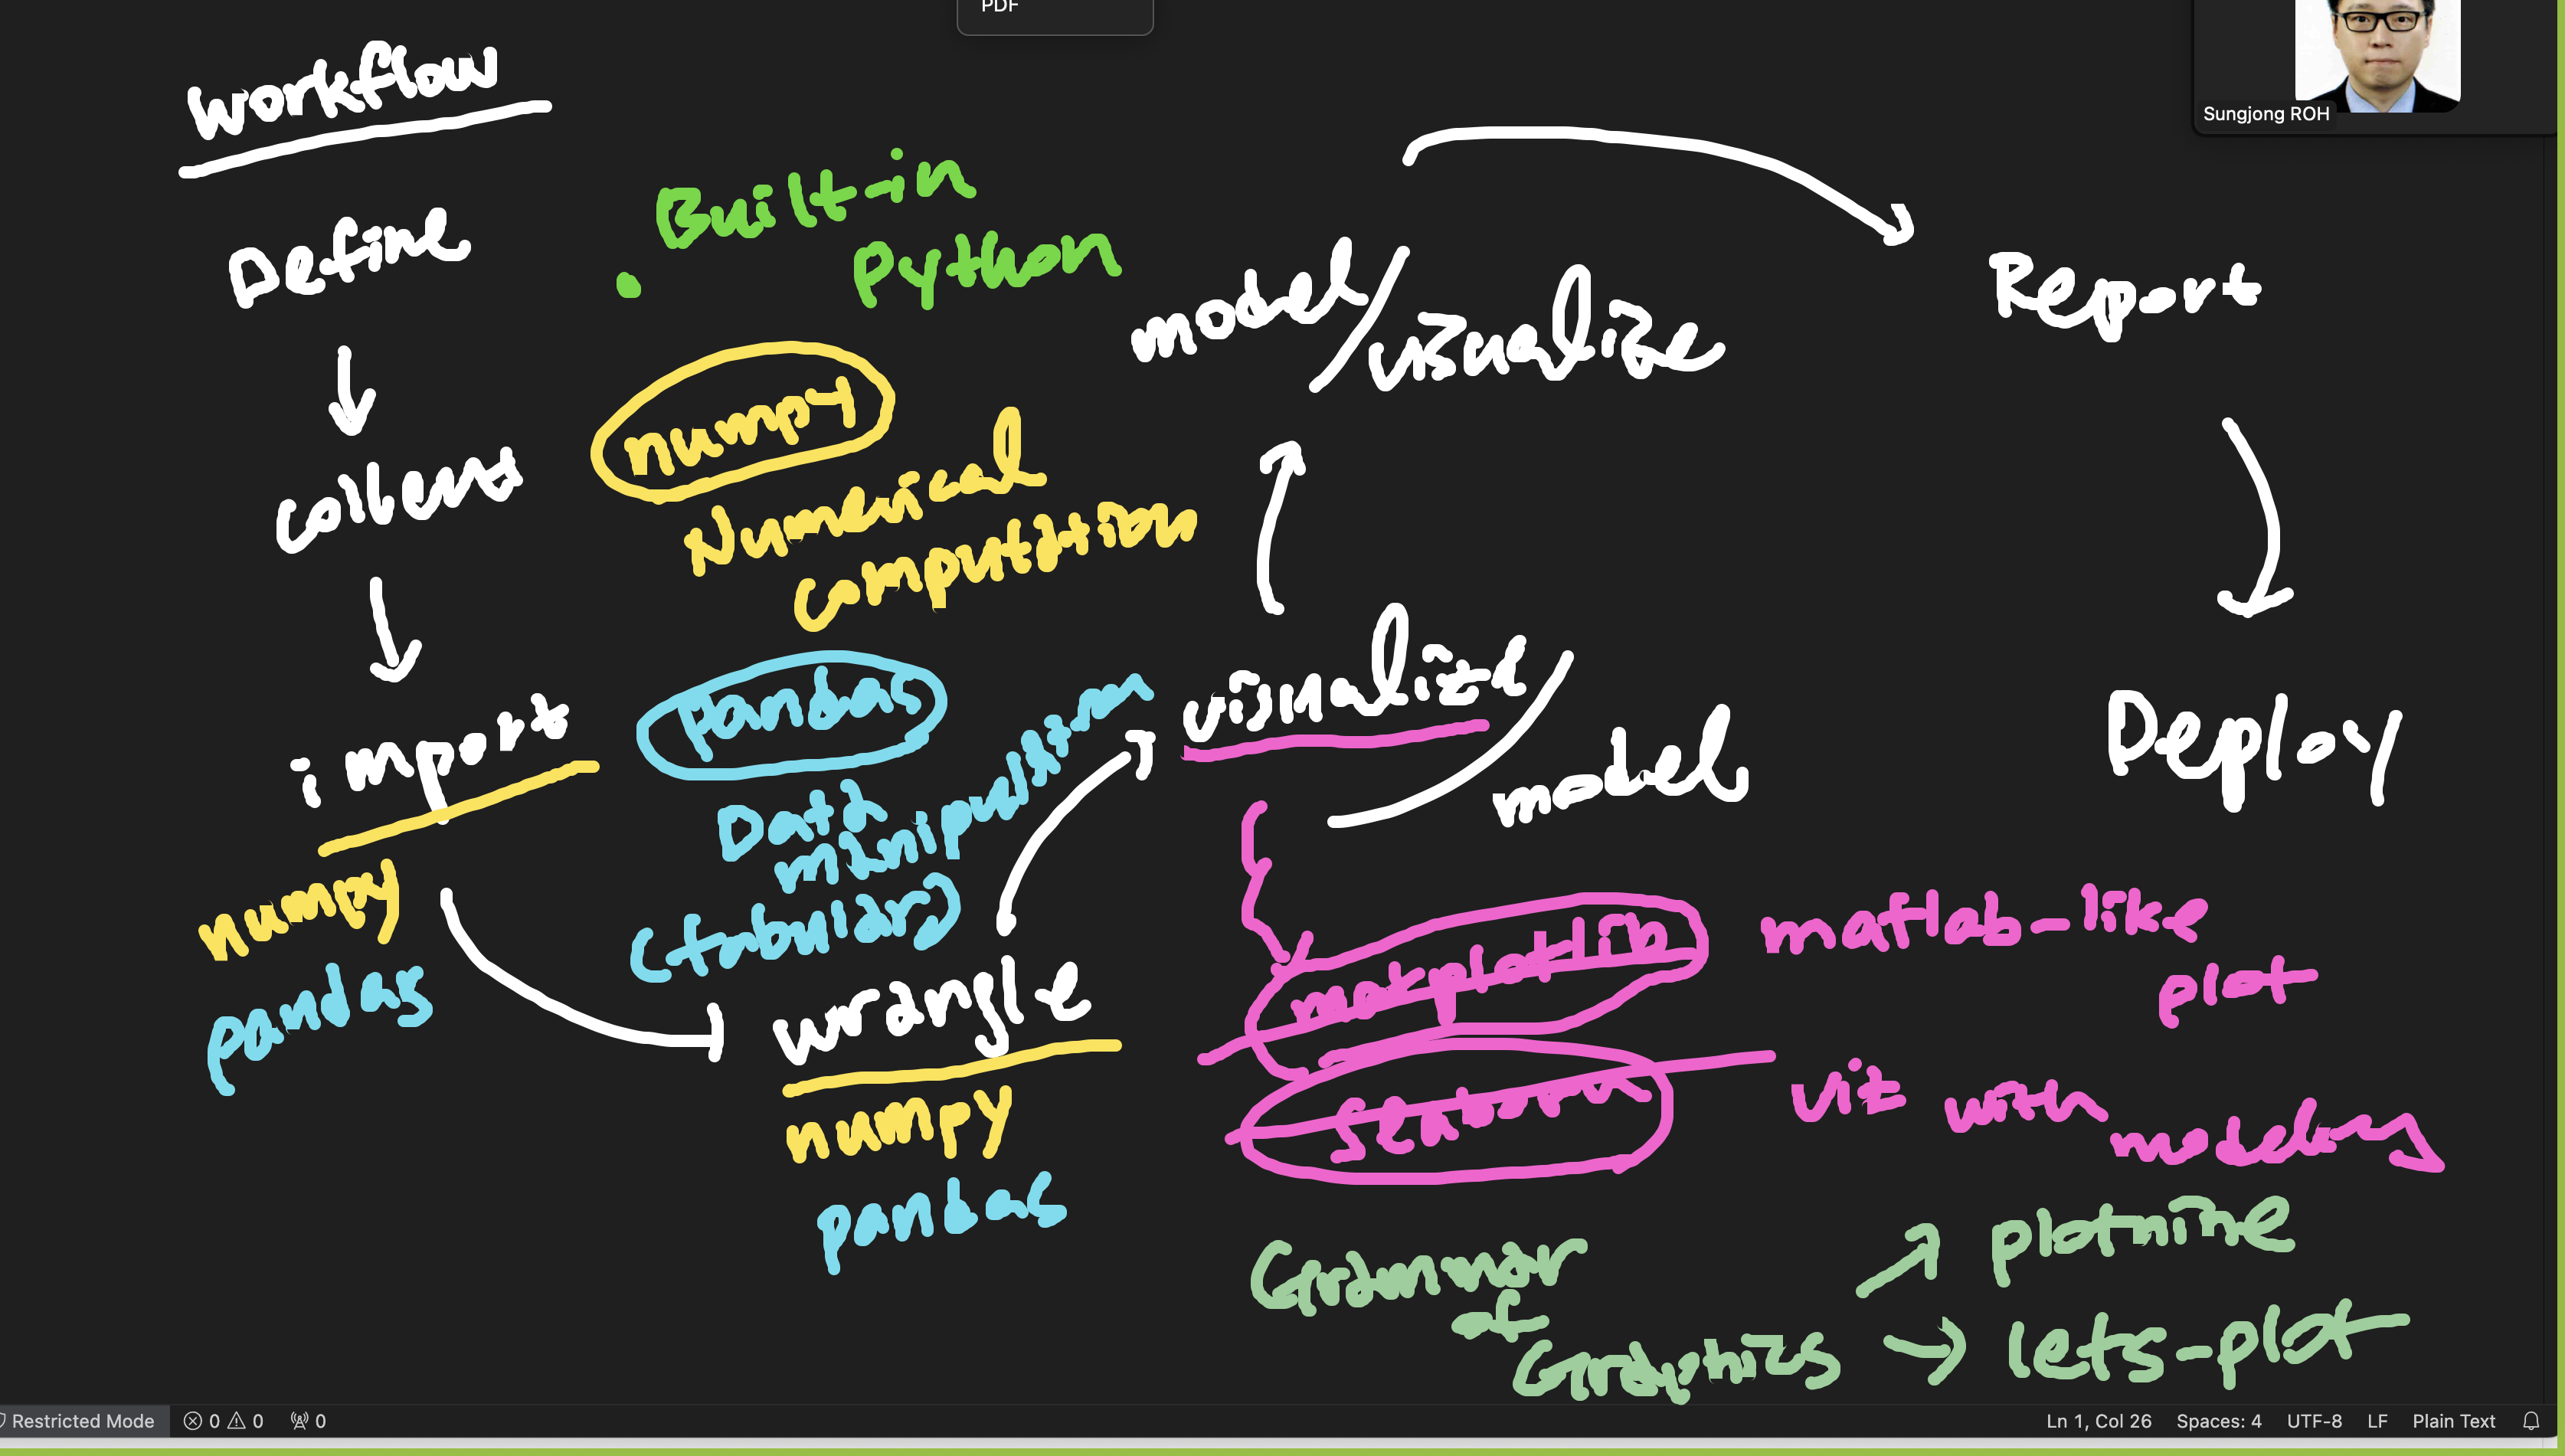 PDF
Sungjong ROH
workflow
Define
collect
import
numpy
pandas
Built-in
Python
numpy
Numerical
computation
pandas
Data
manipulation
(tabular)
wrangle
numpy
pandas
visualize/
model
model/
visualize
Report
Deploy
matplotlib
matlab-like
plot
seaborn
viz with
modeling
Grammar
of
Graphics
plotnine
lets-plot
Restricted Mode
0 0
0
Ln 1, Col 26
Spaces: 4
UTF-8
LF
Plain Text